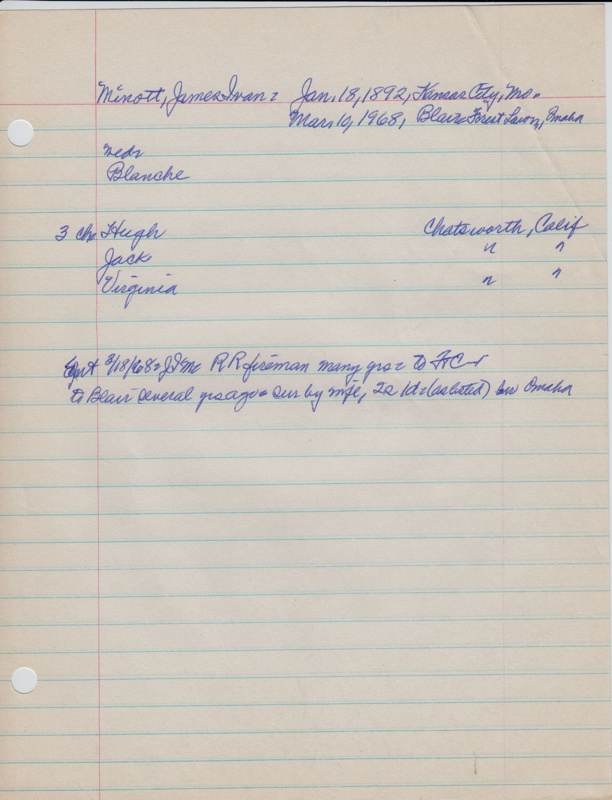 Minott, James Ivan: Jan. 18, 1892, Kansas City, Mo.
Mar. 10, 1968, Blair. Forest Lawn, Omaha
Blanche
3 ch. Hugh Chatsworth, Calif
Jack " "
Virginia " "
3/18/68: JIM R R fireman many yrs: to FtC
to Blair several yrs ago: sur by wife, (as listed) bur Omaha